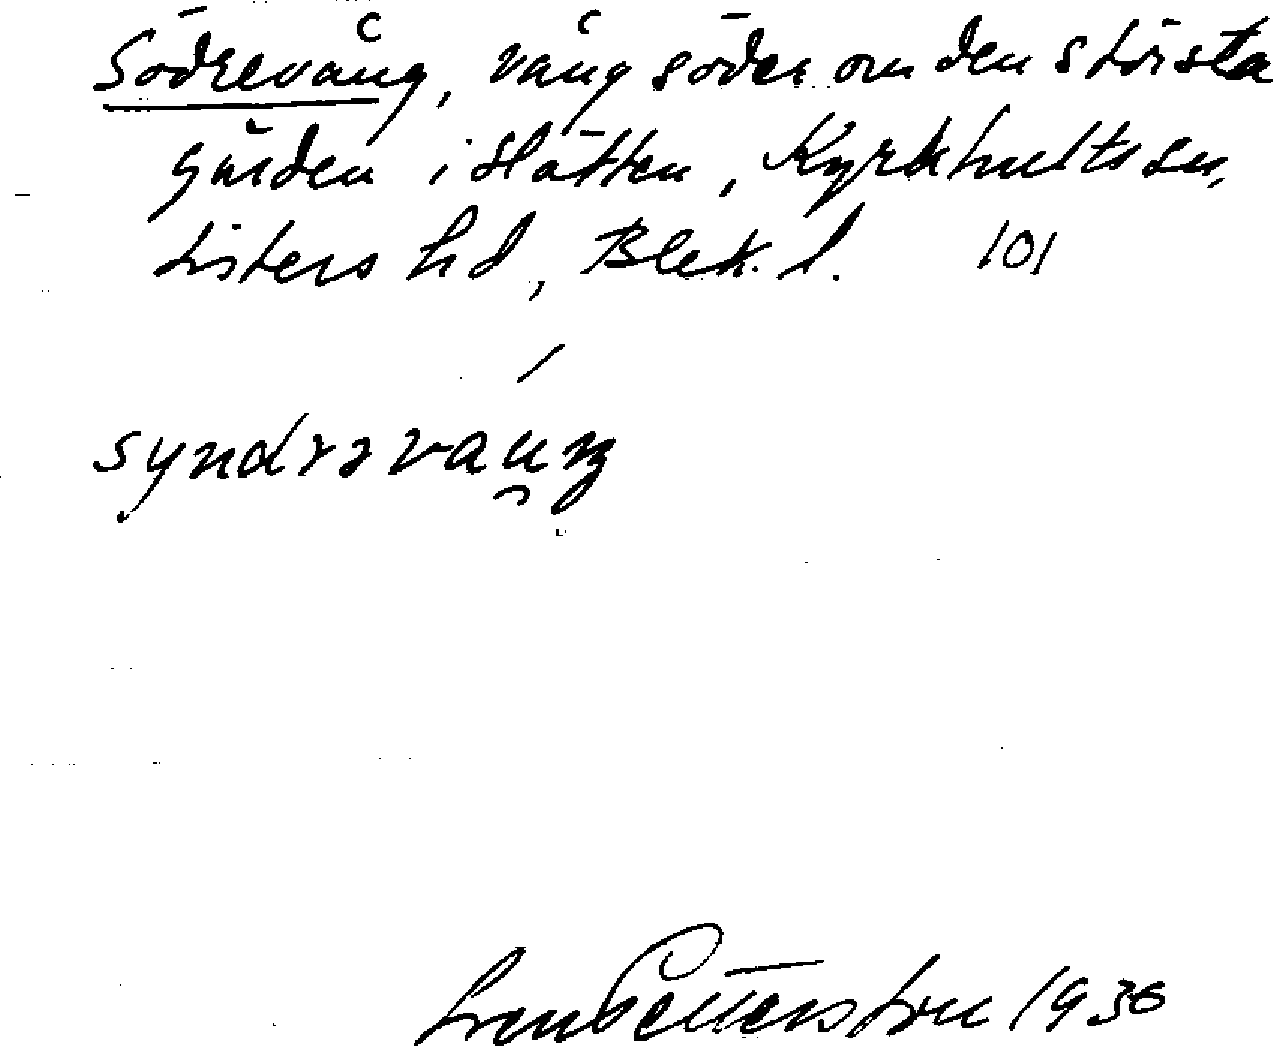 Södrevång, vång söder om den största
gården i Slätten, Kyrkhults sn,
Listers hd, Blek. l. 101
syndrəvau̯ŋ
Petterström 1936